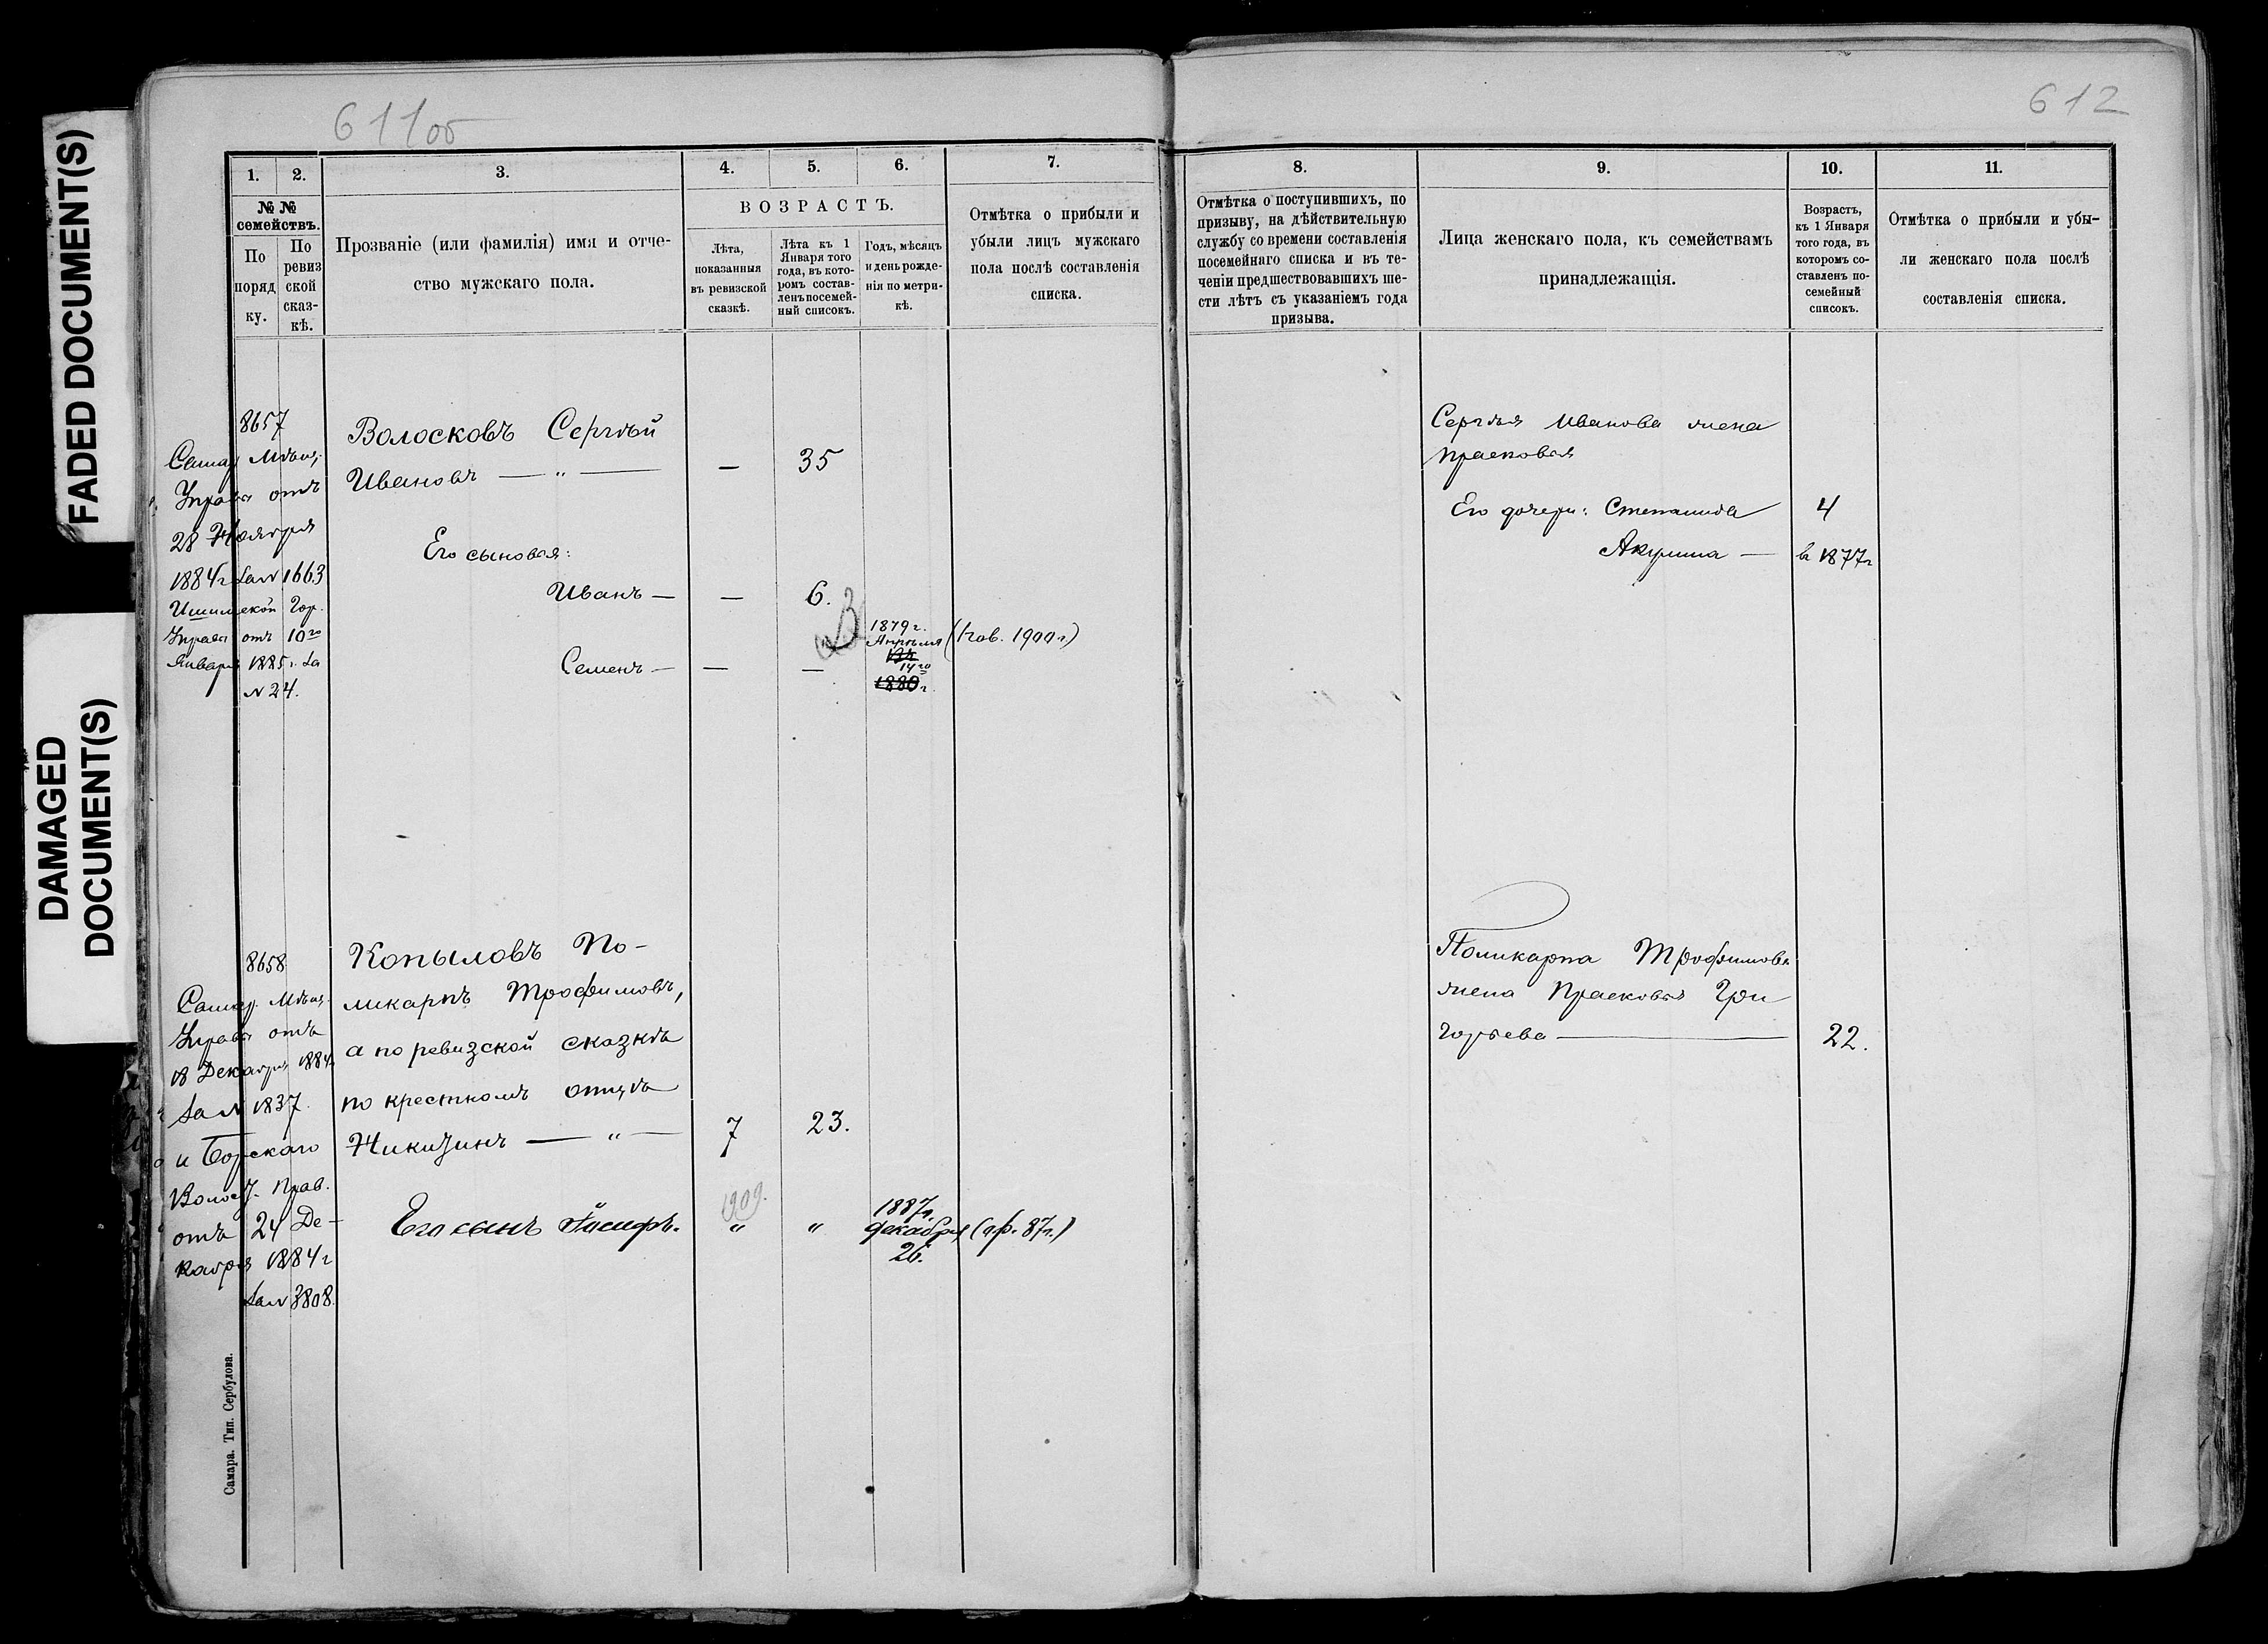 FADED DOCUMENT(S)
DAMAGED
DOCUMENT(S)
611об
1. 2. 3. 4. 5. 6. 7.
№ №
семействъ.
По
поряд
ку.
По
ревиз
ской
сказ-
кѣ.
Прозваніе (или фамилія) имя и отче-
ство мужскаго пола.
ВОЗРАСТЪ.
Лѣта,
показанныя
въ ревизской
сказкѣ.
Лѣта къ 1
Января того
года, въ кото-
ромъ состав-
ленъ посемей-
ный списокъ.
Годъ, мѣсяцъ
и день рожде-
нія по метри-
кѣ.
Отмѣтка о прибыли и
убыли лицъ мужскаго
пола послѣ составленія
списка.
8657
Самар. Мѣщ.
Управы отъ
28 Ноября
1884 г за № 1663
Ишимской Гор.
Управы отъ 10го
Января 1885 г. за
№ 24.
Волосковъ Сергѣй
Ивановъ — „ — — 35
Его сыновья:
Иванъ — — 6.
Семенъ — — —
1879 г.
Апрѣля
14го
1880 г.
(пов. 1900 г)
8658
Самар. Мѣщ.
Управы отъ
18 Декабря 1884
за № 1837.
и Борскаго
Волост. Прав.
отъ 24 Де-
кабря 1884 г
за № 3808.
Копыловъ По-
ликарпъ Трофимовъ,
а по ревизской сказкѣ
по крестномъ отцѣ
Никизинъ — „ — 7 23.
1909.
Его сынъ Іосифъ. „ „
1887 г.
декабря
26.
(пр. 87 г.)
Самара. Тип. Сербулова.
612
8. 9. 10. 11.
Отмѣтка о поступившихъ, по
призыву, на дѣйствительную
службу со времени составленія
посемейнаго списка и въ те-
ченіи предшествовавшихъ ше-
сти лѣтъ съ указаніемъ года
призыва.
Лица женскаго пола, къ семействамъ
принадлежащія.
Возрастъ,
къ 1 Января
того года, въ
которомъ со-
ставленъ по-
семейный
списокъ.
Отмѣтка о прибыли и убы-
ли женскаго пола послѣ
составленія списка.
Сергѣя Иванова жена
Прасковья
Его дочери: Степанида 4
Акулина — въ 1877 г
Поликарпа Трофимова
жена Прасковья Гри
горьева — 22.